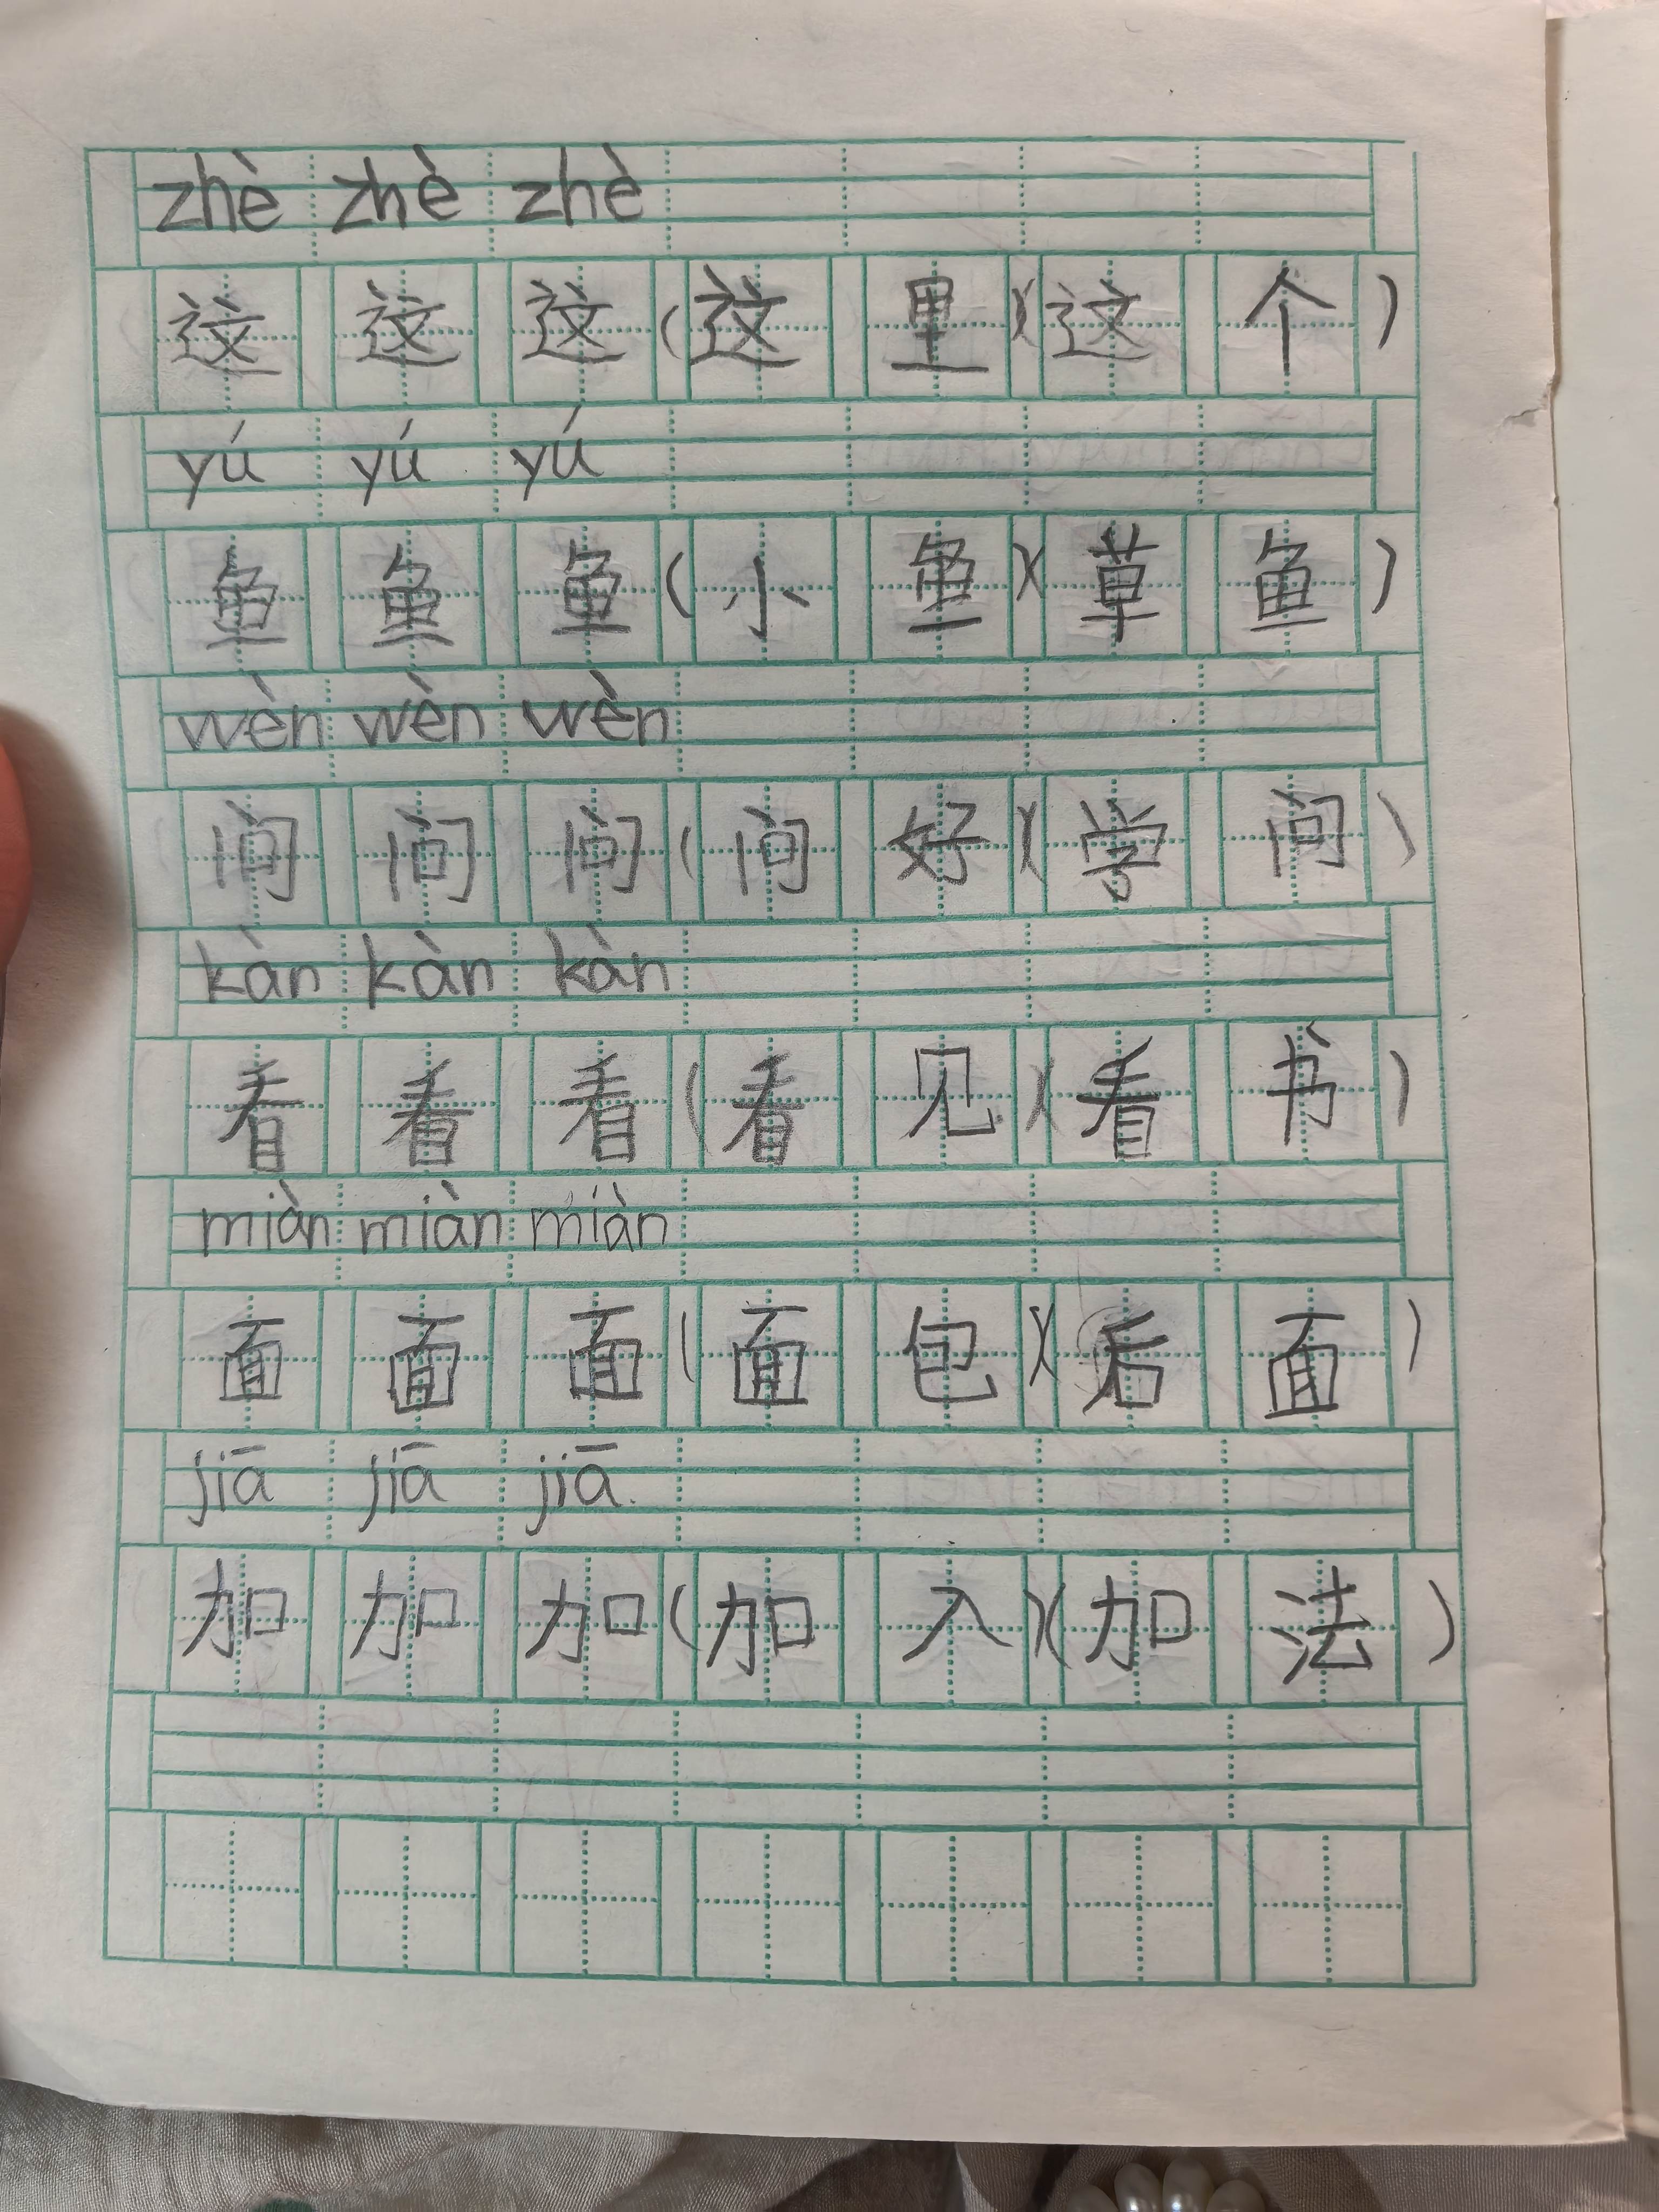 zhè zhè zhè
这 这 这 (这 里)(这 个)
yú yú yú
鱼 鱼 鱼 (小 鱼)(草 鱼)
wèn wèn wèn
问 问 问 (问 好)(学 问)
kàn kàn kàn
看 看 看 (看 见)(看 书)
miàn miàn miàn
面 面 面 (面 包)(后 面)
jiā jiā jiā
加 加 加 (加 入)(加 法)